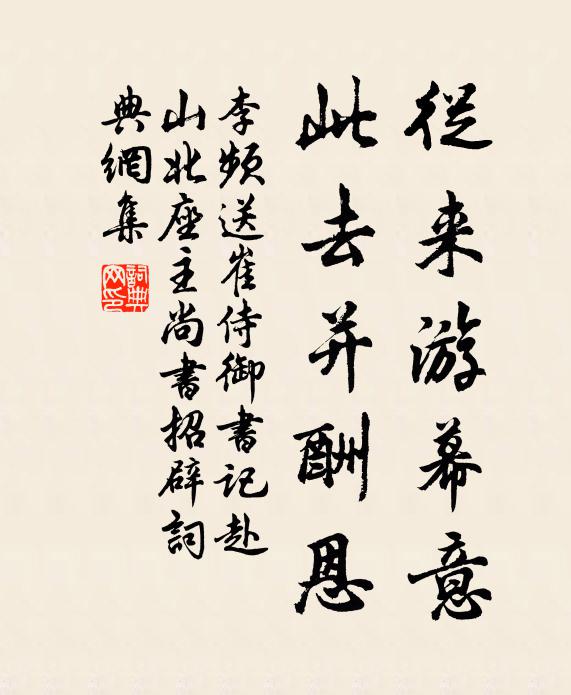 從来游幕意
此去并酬恩
李頻送崔侍御書記赴
山北座主尚書招辟詞
典網集
詞典网印